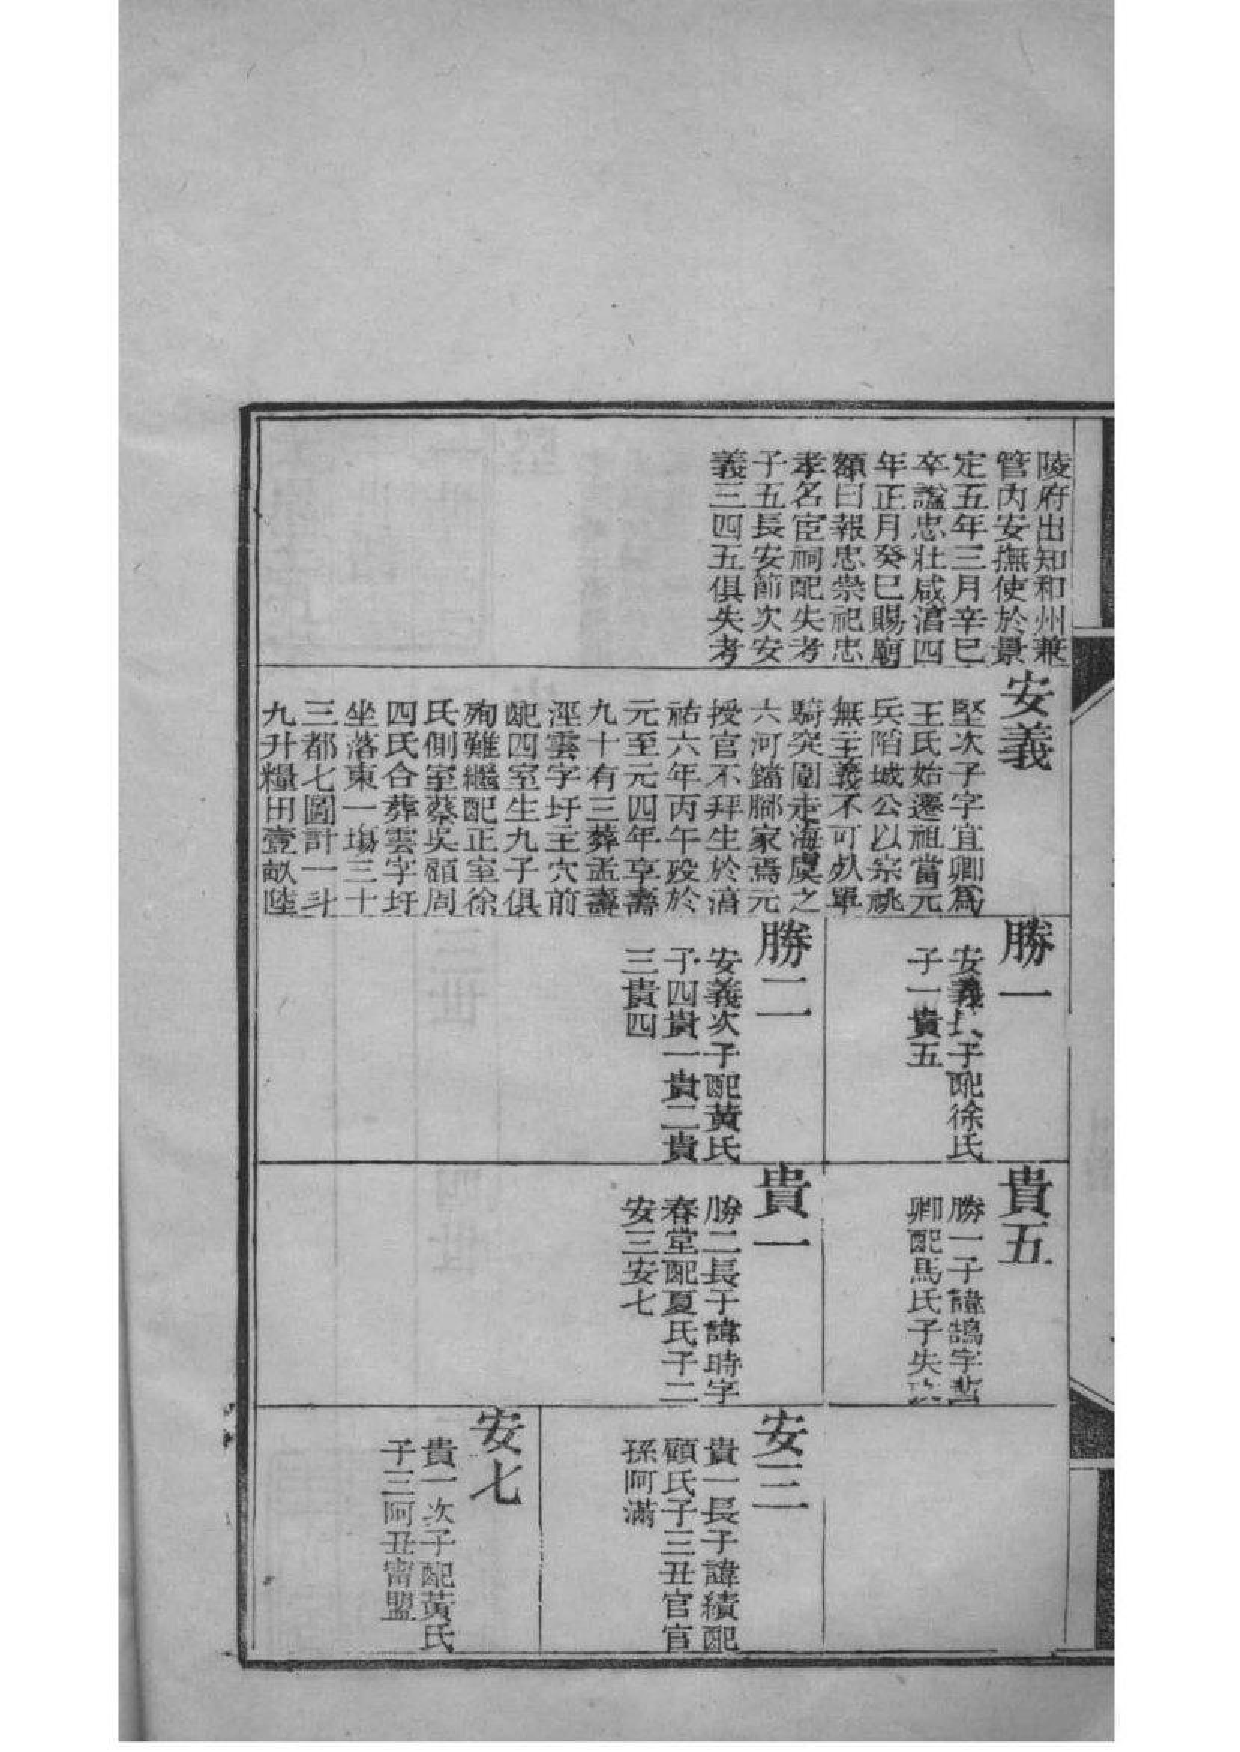 陵府出知和州兼
管內安撫使於景
定五年三月辛巳
卒諡忠壯咸淳四
年正月癸巳賜廟
額曰報忠崇祀忠
孝名宦祠配失考
子五長安節次安
義三四五俱失考
安義
堅次子字宜卿爲
王氏始遷祖當元
兵陷城公以宗祧
無主義不可死單
騎突圍走海虞之
六河鐺腳家焉元
授官不拜生於淳
祐六年丙午歿於
元至元四年享壽
九十有三葬孟壽
涇雲字圩主穴前
配四室生九子俱
殉難繼配正室徐
氏側室蔡吳顧周
四氏合葬雲字圩
坐落東一塲三十
三都七圖計一斗
九升糧田壹畝陸
勝一
安義長子配徐氏
子一貴五
勝二
安義次子配黃氏
子四貴一貴二貴
三貴四
貴五
勝一子諱鵠字哲
卿配馬氏子失
貴一
勝二長子諱時字
春堂配夏氏子二
安三安七
安三
貴一長子諱績配
顧氏子三丑官官
孫阿滿
安七
貴一次子配黃氏
子三阿丑甯盟